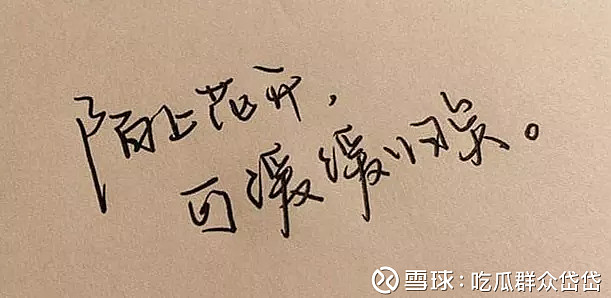 陌上花开，
可缓缓归矣。
雪球：吃瓜群众岱岱